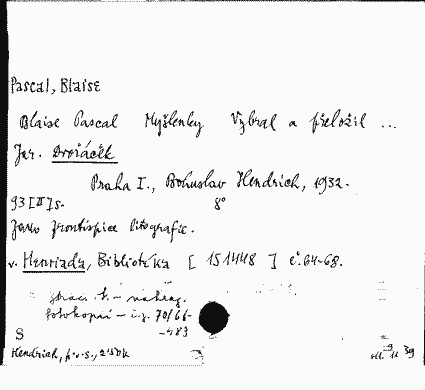 Pascal, Blaise
Blaise Pascal Myšlenky Vybral a přeložil ...
Jar. Dvořáček
Praha I., Bohuslav Hendrich, 1932.
93 [II] s. 8°
frontispice litografic.
v. Henriada, Bibliotéka [ 151448 ] č. 64-68.
ztrác. - nahraz.
fotokopií - i.č. 70/66-
-483
S
Hendrich,